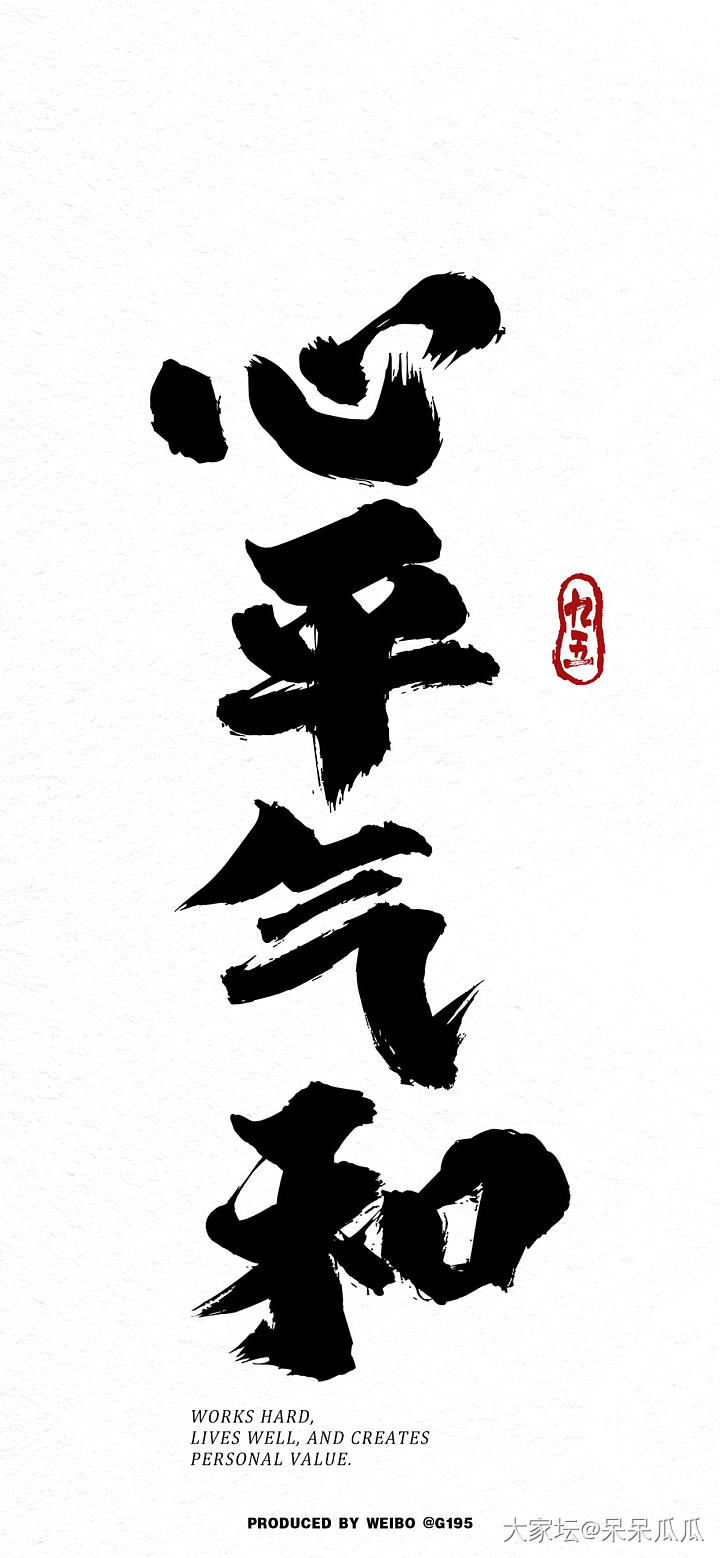 心平气和
九五
WORKS HARD,
LIVES WELL, AND CREATES
PERSONAL VALUE.
PRODUCED BY WEIBO @G195
大家坛@呆呆瓜瓜